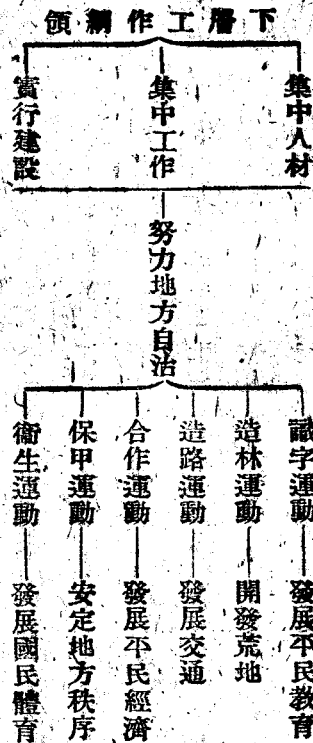 下層工作綱領
集中人材
集中工作
實行建設
努力地方自治
識字運動
發展平民教育
造林運動
開發荒地
造路運動
發展交通
合作運動
發展平民經濟
保甲運動
安定地方秩序
衞生運動
發展國民體育